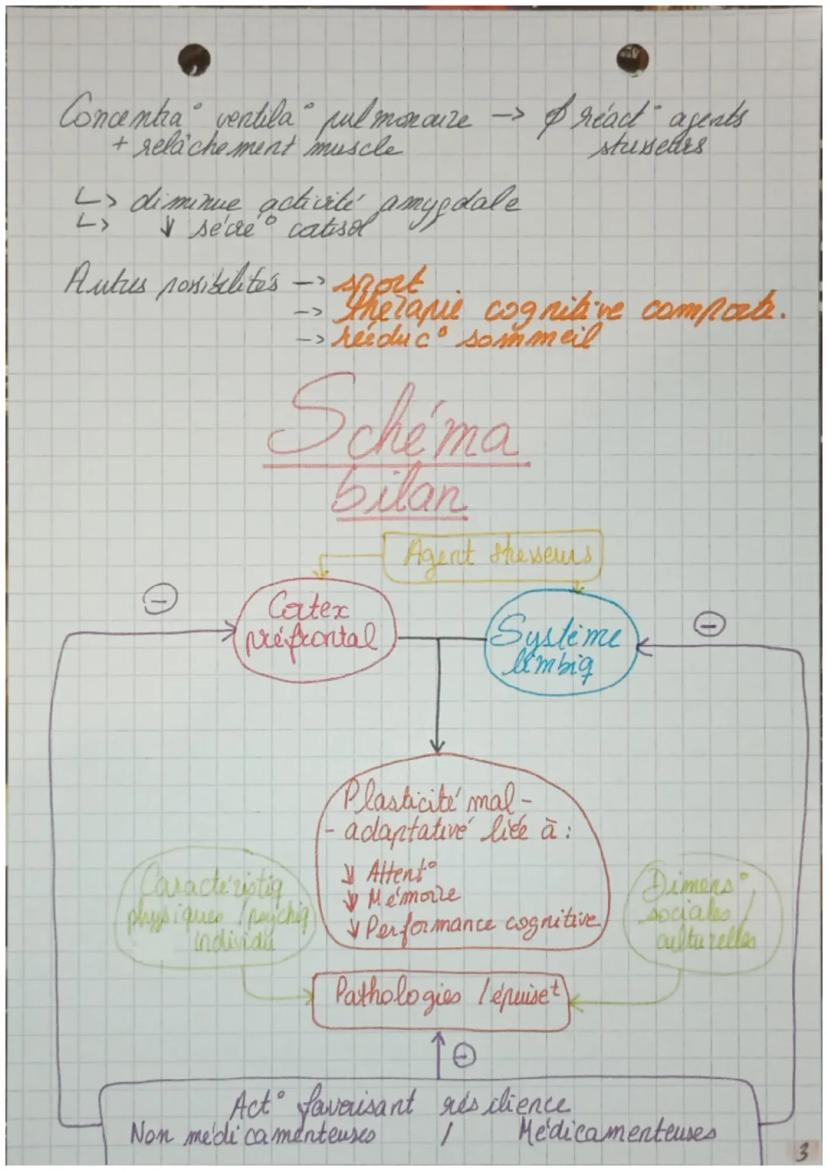 Concentra° ventila° pulmonaire -> ∅ réact° agents
+ relâchement muscle stresseurs
↳ diminue activité amygdale
↳ ↓ sécré° cotisol
Autres possibilités -> sport
-> thérapie cognitive comporte.
-> rééduc° sommeil
Schéma
bilan
Agent stresseurs
Cortex
préfrontal
Système
limbiq
Plasticité mal-
-adaptative liée à :
↓ Attent°
↓ Mémoire
↓ Performance cognitive
Caractéristiq
physiques / psychiq
individu
Dimens°
sociales /
culturelles
Pathologies / épuiseᵗ
Act° favorisant résilience
Non médicamenteuses / Médicamenteuses
3